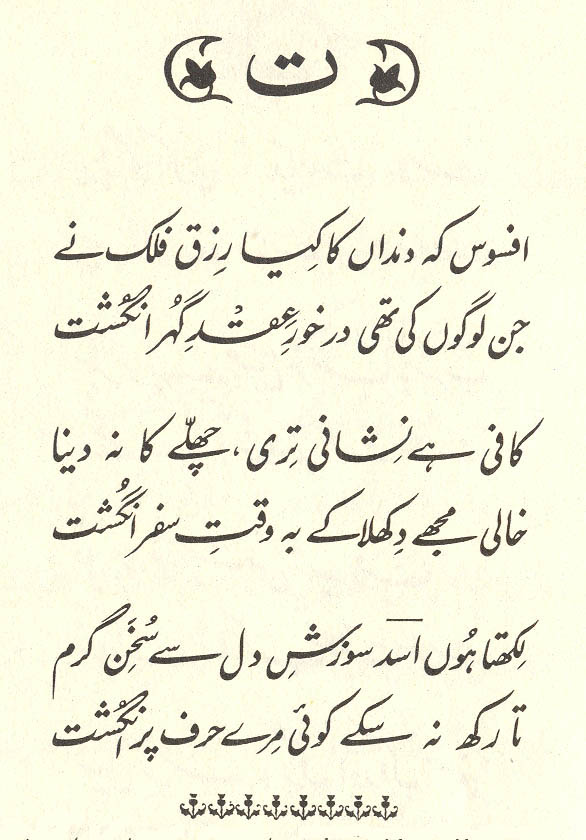 ت
افسوس کہ دنداں کا کِیا رِزق فلک نے
جن لوگوں کی تھی درخورِ عِقدِ گہُر انگُشت
کافی ہے نِشانی تِری، چھلّے کا نہ دینا
خالی مجھے دِکھلا کے بہ وقتِ سفر انگُشت
لِکھتا ہُوں اسدؔ سوزشِ دل سے سُخَنِ گرم
تا رکھ نہ سکے کوئی مِرے حرف پر انگُشت